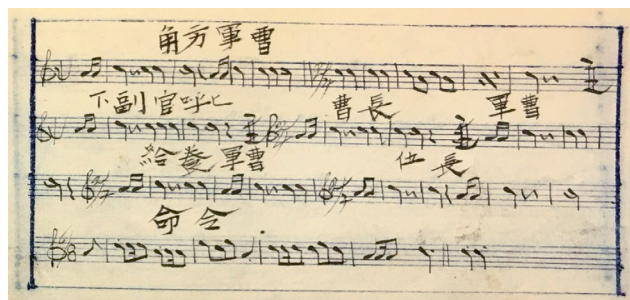 角方軍曹
下副官呼ヒ 曹長 軍曹
給養軍曹 伍長
命令